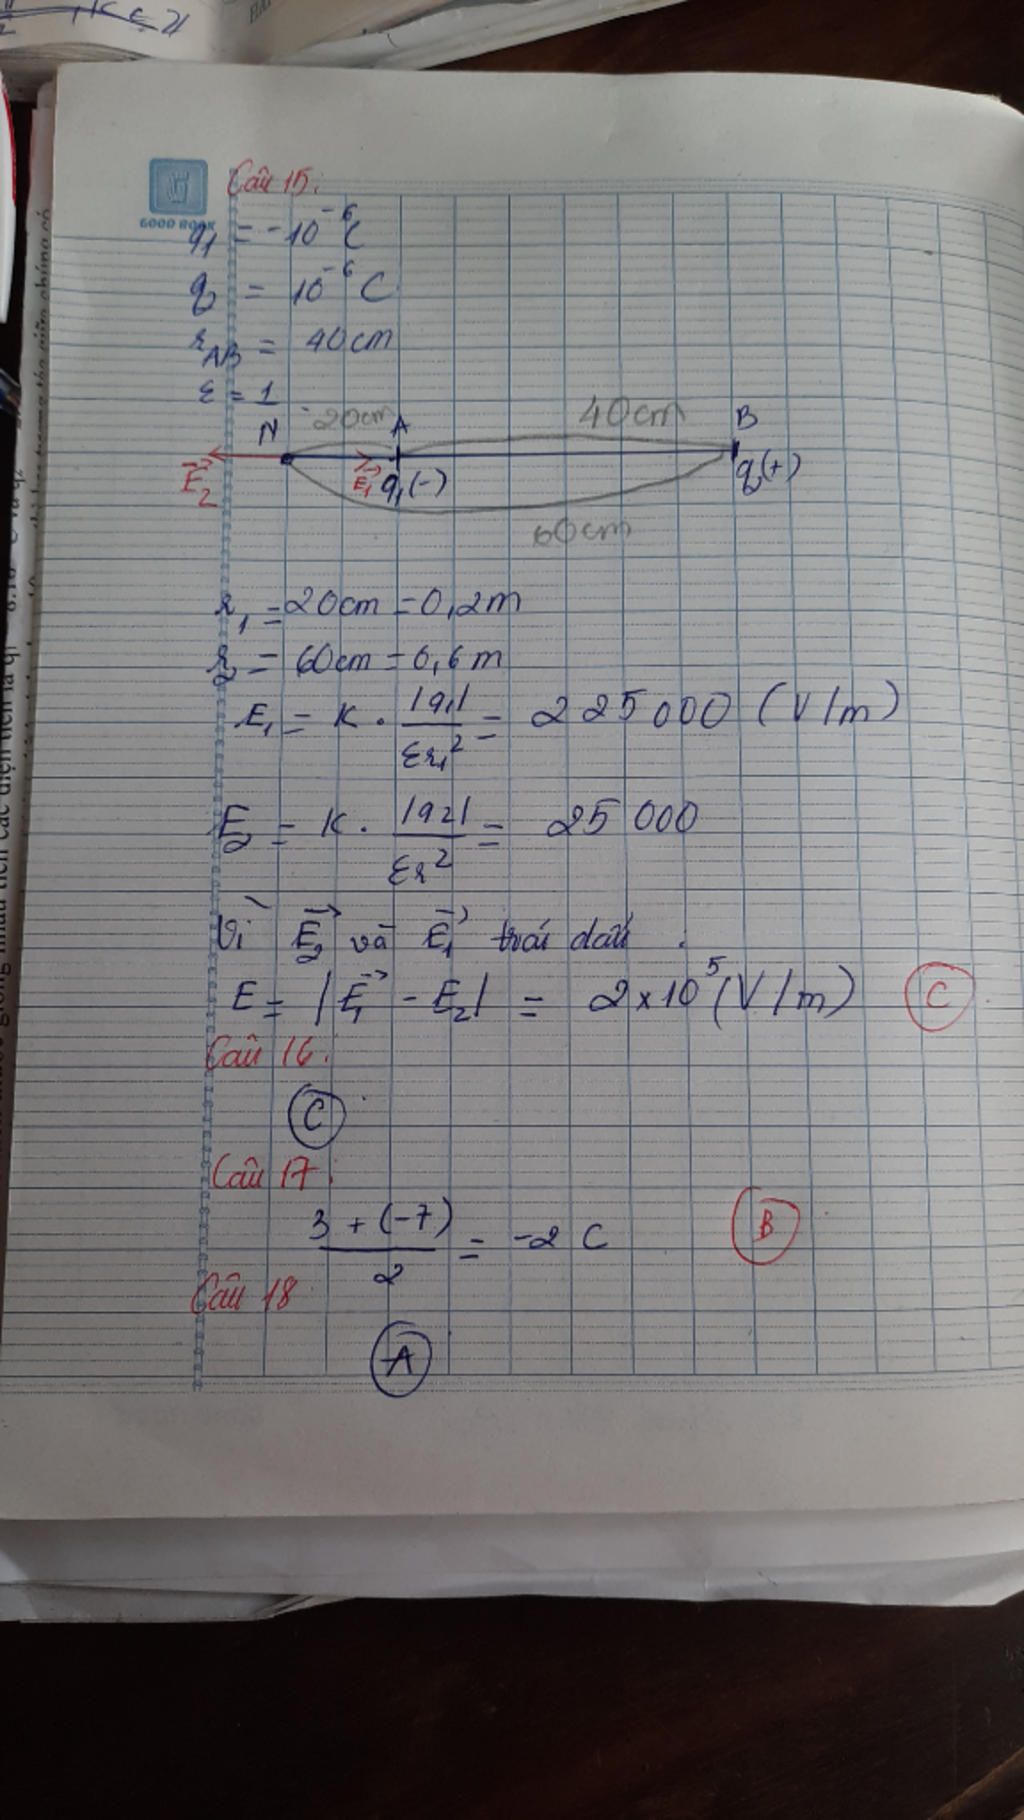 Câu 15:
GOOD BOOK
q₁ = -10⁻⁶C
q₂ = 10⁻⁶ C
r_AB = 40cm
ε = 1
N 20cm A 40cm B
E₂→ E₁→ q₁(-) q₂(+)
60cm
r₁ = 20cm = 0,2m
r₂ = 60cm = 0,6m
E₁ = K . |q₁| / εr₁² = 225000 (V/m)
E₂ = K . |q2| / εr² = 25 000
Vì E₂→ và E₁→ trái dấu .
E = |E₁→ - E₂| = 2x10⁵ (V/m) C
Câu 16:
C
Câu 17:
3 + (-7) / 2 = -2 C B
Câu 18
A